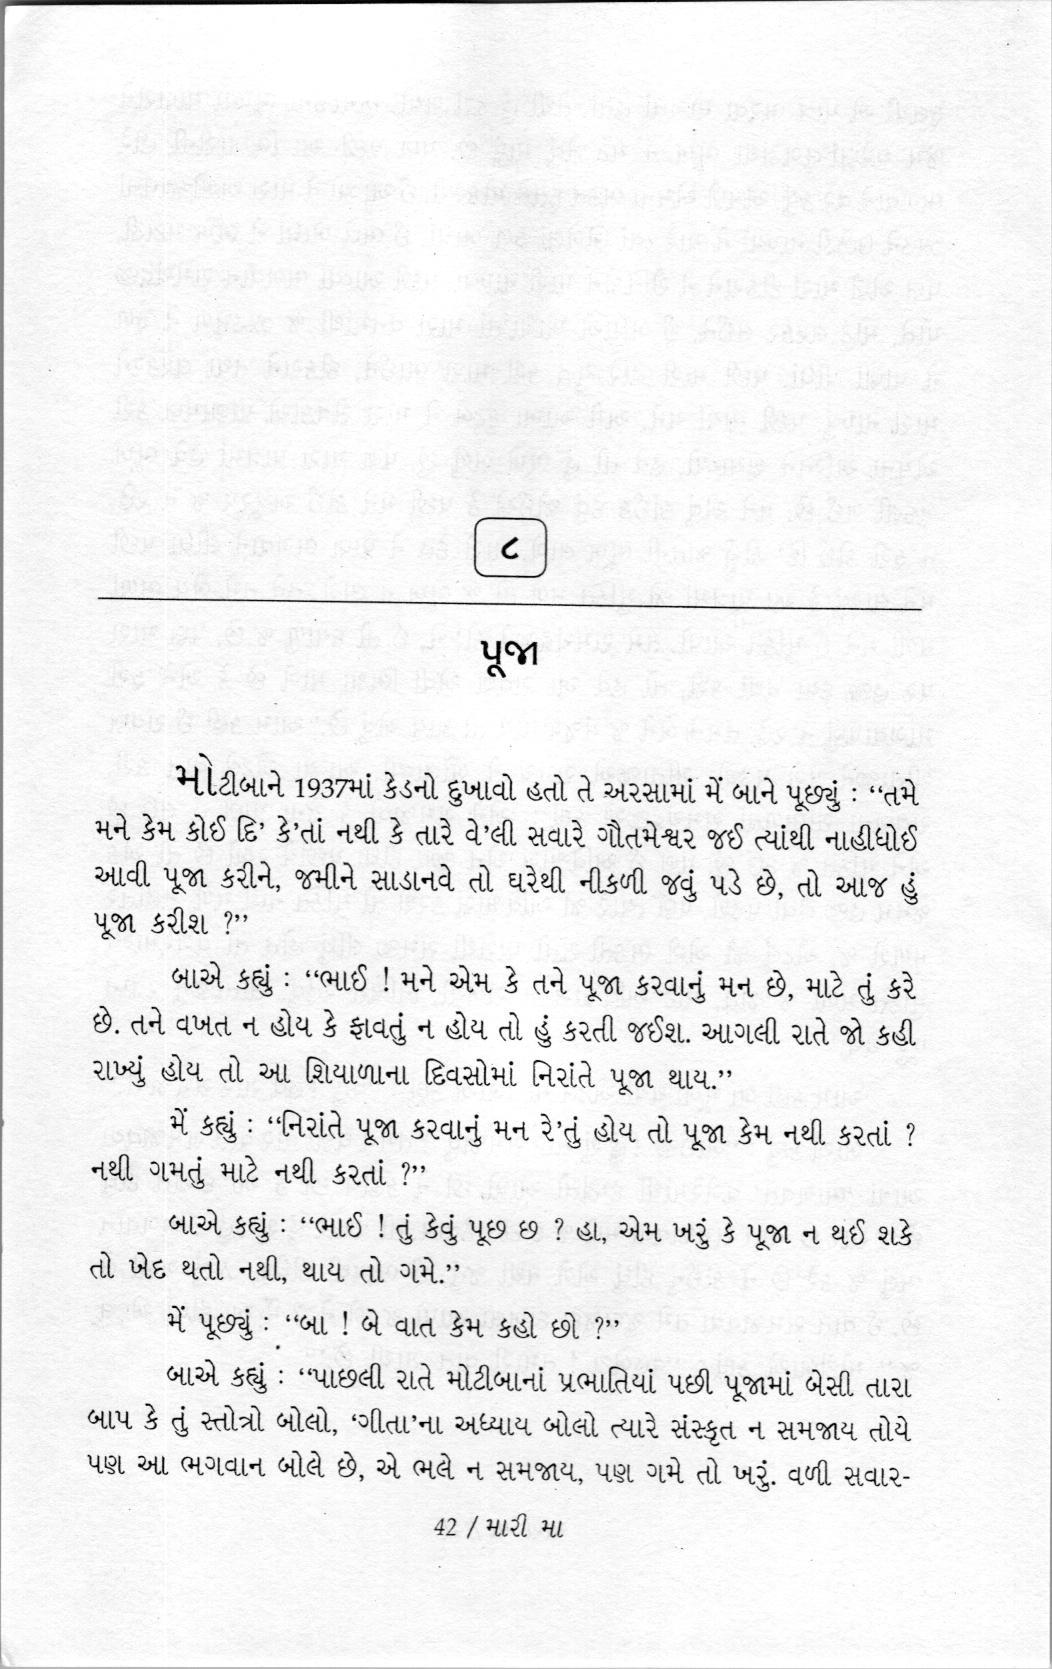 ૮
પૂજા
મોટીબાને 1937માં કેડનો દુખાવો હતો તે અરસામાં મેં બાને પૂછ્યું : “તમે
મને કેમ કોઈ દિ’ કે’તાં નથી કે તારે વે’લી સવારે ગૌતમેશ્વર જઈ ત્યાંથી નાહીધોઈ
આવી પૂજા કરીને, જમીને સાડાનવે તો ઘરેથી નીકળી જવું પડે છે, તો આજ હું
પૂજા કરીશ ?”
બાએ કહ્યું : “ભાઈ ! મને એમ કે તને પૂજા કરવાનું મન છે, માટે તું કરે
છે. તને વખત ન હોય કે ફાવતું ન હોય તો હું કરતી જઈશ. આગલી રાતે જો કહી
રાખ્યું હોય તો આ શિયાળાના દિવસોમાં નિરાંતે પૂજા થાય.”
મેં કહ્યું : “નિરાંતે પૂજા કરવાનું મન રે’તું હોય તો પૂજા કેમ નથી કરતાં ?
નથી ગમતું માટે નથી કરતાં ?”
બાએ કહ્યું : “ભાઈ ! તું કેવું પૂછ છ ? હા, એમ ખરું કે પૂજા ન થઈ શકે
તો ખેદ થતો નથી, થાય તો ગમે.”
મેં પૂછ્યું : “બા ! બે વાત કેમ કહો છો ?”
બાએ કહ્યું : “પાછલી રાતે મોટીબાનાં પ્રભાતિયાં પછી પૂજામાં બેસી તારા
બાપ કે તું સ્તોત્રો બોલો, ‘ગીતા’ના અધ્યાય બોલો ત્યારે સંસ્કૃત ન સમજાય તોયે
પણ આ ભગવાન બોલે છે, એ ભલે ન સમજાય, પણ ગમે તો ખરું. વળી સવાર-
42 / મારી મા